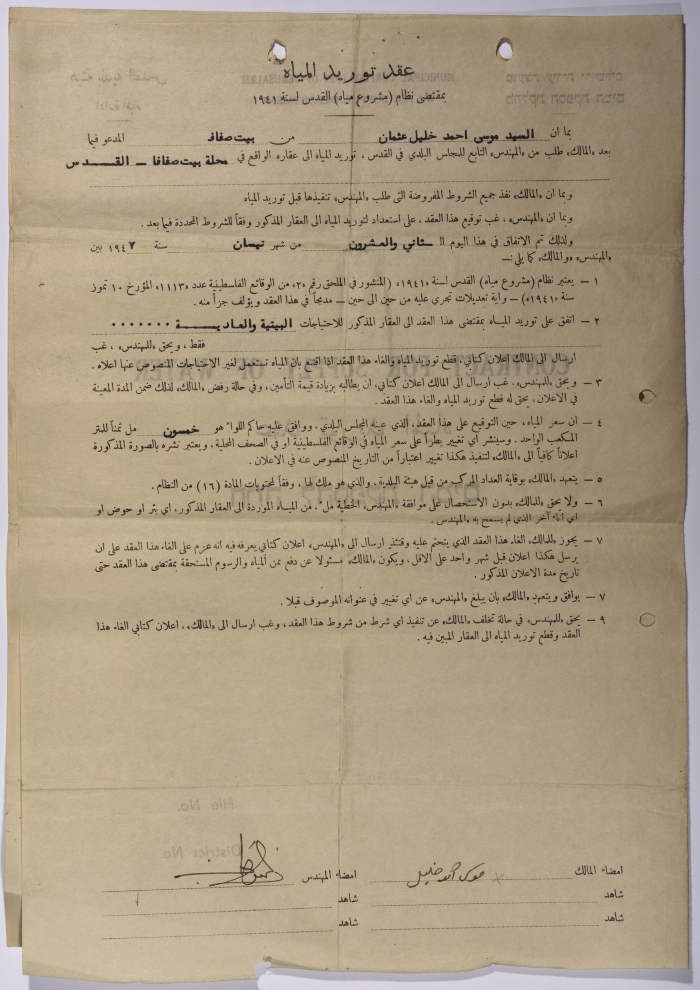 عقد توريد المياه
بمقتضى نظام (مشروع مياه) القدس لسنة ١٩٤١
بما ان السيد موسى احمد خليل عثمان من بيت صفافا المدعو فيما
بعد «المالك» طلب من «المهندس» التابع للمجلس البلدي في القدس ، توريد المياه الى عقاره الواقع في محلة بيت صفافا – القـــدس
وبما ان «المالك» نفذ جميع الشروط المفروضة التى طلب «المهندس» تنفيذها قبل توريد المياه
وبما ان «المهندس» ، غب توقيع هذا العقد ، على استعداد لتوريد المياه الى العقار المذكور وفقاً للشروط المحددة فيما بعد .
ولذلك تم الاتفاق في هذا اليوم الـ ـثاني والعشرون من شهر نيسان سنة ١٩٤٧ بين
«المهندس» و«المالك» كما يلي :—
١ – يعتبر نظام (مشروع مياه) القدس لسنة «١٩٤١» (المنشور في الملحق رقم «٢» من الوقائع الفلسطينية عدد «١١١٣» المؤرخ ١٠ تموز
سنة «١٩٤١») – واية تعديلات تجرى عليه من حين الى حين – مدمجاً في هذا العقد ويؤلف جزأً منه .
٢ – اتفق على توريد الميـاه بمقتضى هذا العقد الى العقار المذكور للاحتياجات البيتية والعاديـــــة ٠٠٠٠٠٠٠
فقط ، ويحق «للمهندس» ، غب
ارسال الى المالك اعلان كتابي ، قطع توريد المياه والغاء هذا العقد اذا اقتنع بان المياه تستعمل لغير الاحتياجات المنصوص عنها اعلاه .
٣ – ويحق «للمهندس» ، غب ارسال الى المالك اعلان كتابي ، ان يطالبه بزيادة قيمة التأمين ، وفي حالة رفض «المالك» لذلك ضمن المدة المعينة
في الاعلان ، يحق له قطع توريد المياه والغاء هذا العقد .
٤ – ان سعر المياه ، حين التوقيع على هذا العقد ، الذي عينه المجلس البلدي ، ووافق عليه حاكم اللواء هو خمسون مل ثمناً للمتر
المكعب الواحد . وسينشر اي تغيير يطرأ على سعر المياه في الوقائع الفلسطينية او في الصحف المحلية ، ويعتبر نشره بالصورة المذكورة
اعلاناً كافياً الى «المالك» لتنفيذ هكذا تغيير اعتباراً من التاريخ المنصوص عنه في الاعلان .
٥ – يتعهد «المالك» بوقاية العداد المركب من قبل هيئة البلدية ، والذي هو ملك لها ، وفقاً لمحتويات المادة (١٦) من النظام .
٦ – ولا يحق «للمالك» بدون الاستحصال على موافقة «المهندس» الخطية ملء ، من الميـاه الموردة الى العقار المذكور ، اي بئر او حوض او
اي اناء آخر الذي لم يسمح به «المهندس» .
٧ – يجوز «للمالك» الغاء هذا العقد الذي يتحتم عليه وقتئذ ارسال الى «المهندس» اعلان كتابي يعرفه فيه انه عزم على الغاء هذا العقد على ان
يرسل هكذا اعلان قبل شهر واحد على الاقل ، ويكون «المالك» مسئولا عن دفع ثمن المياه والرسوم المستحقة بمقتضى هذا العقد حتى
تاريخ مدة الاعلان المذكور .
٧ – يوافق ويتعهد «المالك» بان يبلغ «المهندس» عن اي تغيير في عنوانه الموصوف قبلا .
٩ – يحق «للمهندس» في حالة تخلف «المالك» عن تنفيذ اي شرط من شروط هذا العقد ، وغب ارسال الى «المالك» ، اعلان كتابي الغاء هذا
العقد وقطع توريد المياه الى العقار المبين فيه .
امضاء المالك موسى احمد خليل امضاء المهندس
شاهد شاهد
شاهد شاهد
File No.
District No.